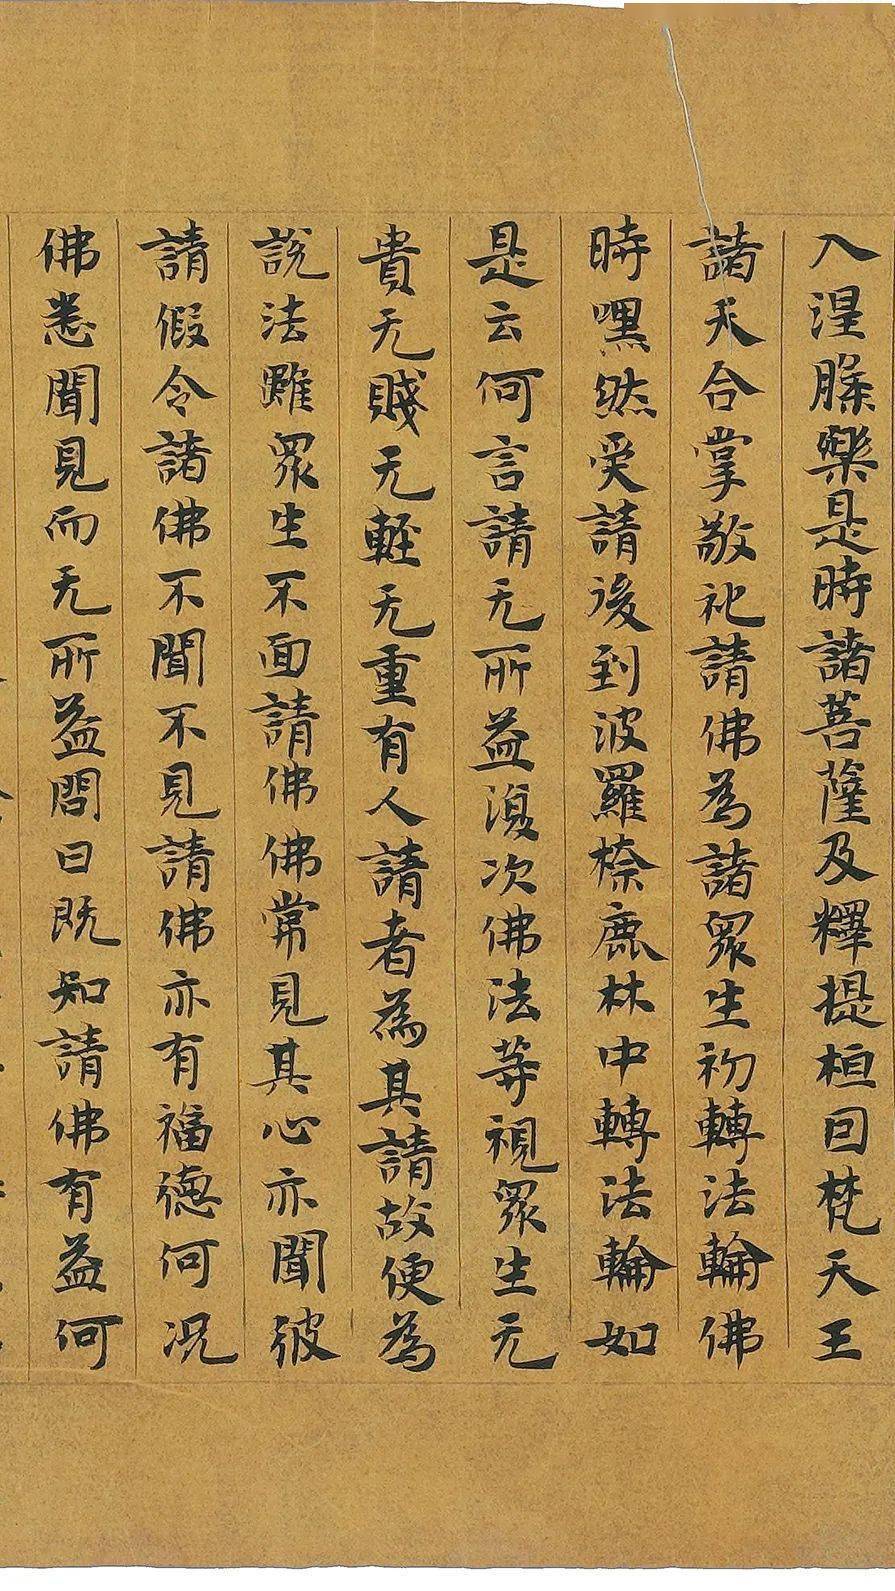 入涅槃樂是時諸菩薩及釋提桓因梵天王
諸天合掌敬礼請佛為諸眾生初轉法輪佛
時嘿然受請後到波羅㮈鹿林中轉法輪如
是云何言請无所益復次佛法等視眾生无
貴无賤无輕无重有人請者為其請故便為
說法雖眾生不面請佛佛常見其心亦聞彼
請假令諸佛不聞不見請佛亦有福德何況
佛悉聞見而无所益問曰既知請佛有益何